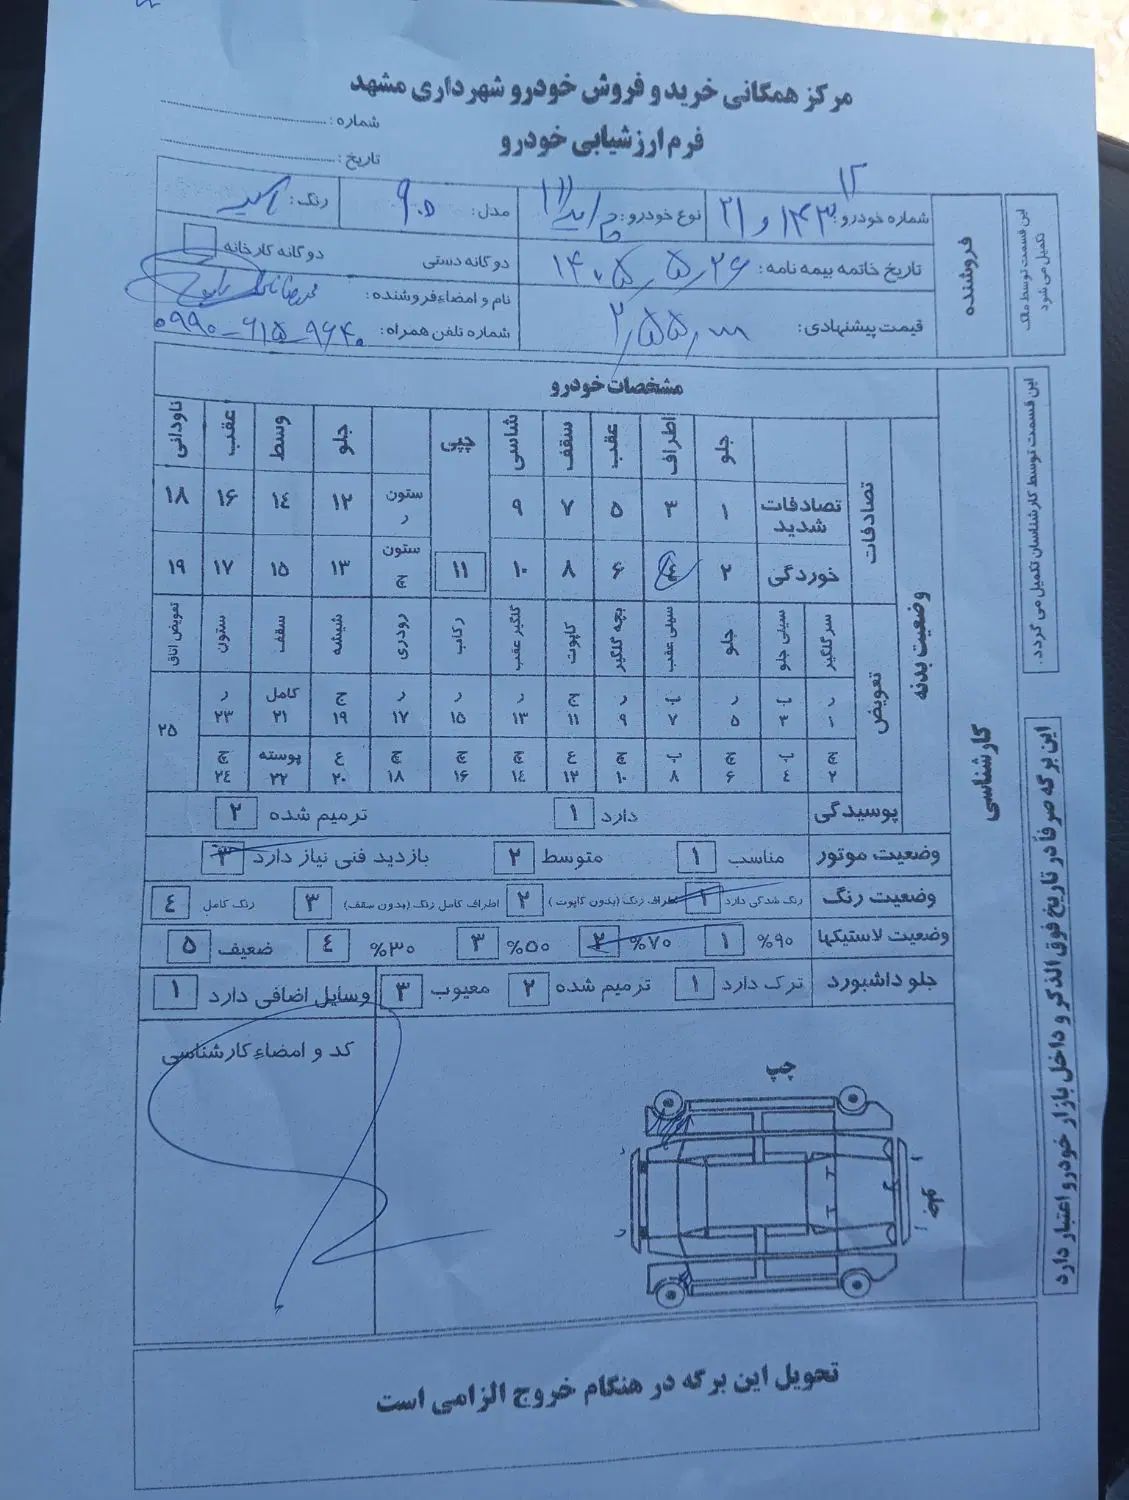 مرکز همگانی خرید و فروش خودرو شهرداری مشهد
شماره :
فرم ارزشیابی خودرو
تاریخ :
۱۲
شماره خودرو: ۱۴۳ و ۲۱ نوع خودرو: ۱۱۱ مدل: ۹۰ رنگ: سفید
تاریخ خاتمه بیمه نامه : ۱۴۰۵٫۵٫۲۶ دوگانه دستی دوگانه کارخانه
قیمت پیشنهادی: نام و امضاء فروشنده :
شماره تلفن همراه: ۰۹۹۰-۶۱۵-۹۶۴۰
فروشنده
این قسمت توسط مالک تکمیل می شود
مشخصات خودرو
تصادفات جلو اطراف عقب سقف شاسی پاپی جلو وسط عقب ناودانی
تصادفات شدید ۱ ۳ ۵ ۷ ۹ ستون ر ۱۲ ۱٤ ۱۶ ۱۸
خوردگی ۲ ٤ ۶ ۸ ۱۰ ۱۱ ستون چ ۱۳ ۱۵ ۱۷ ۱۹
تعویض سر گلگیر سینی جلو جلو سینی عقب بچه گلگیر کاپوت گلگیر عقب رکاب رودری شیشه سقف ستون تعویض اتاق
ر ۱ ب ۳ ر ۵ ب ۷ ر ۹ ج ۱۱ ر ۱۳ ر ۱۵ ر ۱۷ ج ۱۹ کامل ۲۱ ر ۲۳ ۲۵
چ ۲ ب ٤ چ ۶ پ ۸ چ ۱۰ ع ۱۲ چ ۱٤ چ ۱۶ چ ۱۸ ع ۲۰ پوسته ۲۲ چ ۲٤
وضعیت بدنه
پوسیدگی دارد ۱ ترمیم شده ۲
وضعیت موتور مناسب ۱ متوسط ۲ بازدید فنی نیاز دارد ۳
وضعیت رنگ رنگ شدگی دارد ۱ اطراف رنگ (بدون کاپوت) ۲ اطراف کامل رنگ (بدون سقف) ۳ رنگ کامل ٤
وضعیت لاستیکها ۹۰% ۱ ۷۰% ۲ ۵۰% ۳ ۳۰% ٤ ضعیف ۵
جلو داشبورد ترک دارد ۱ ترمیم شده ۲ معیوب ۳ وسایل اضافی دارد ۱
کد و امضاء کارشناسی
چپ
کارشناسی
این قسمت توسط کارشناسان تکمیل می گردد.
این برگه صرفاً در تاریخ فوق الذکر و داخل بازار خودرو اعتبار دارد
تحویل این برگه در هنگام خروج الزامی است